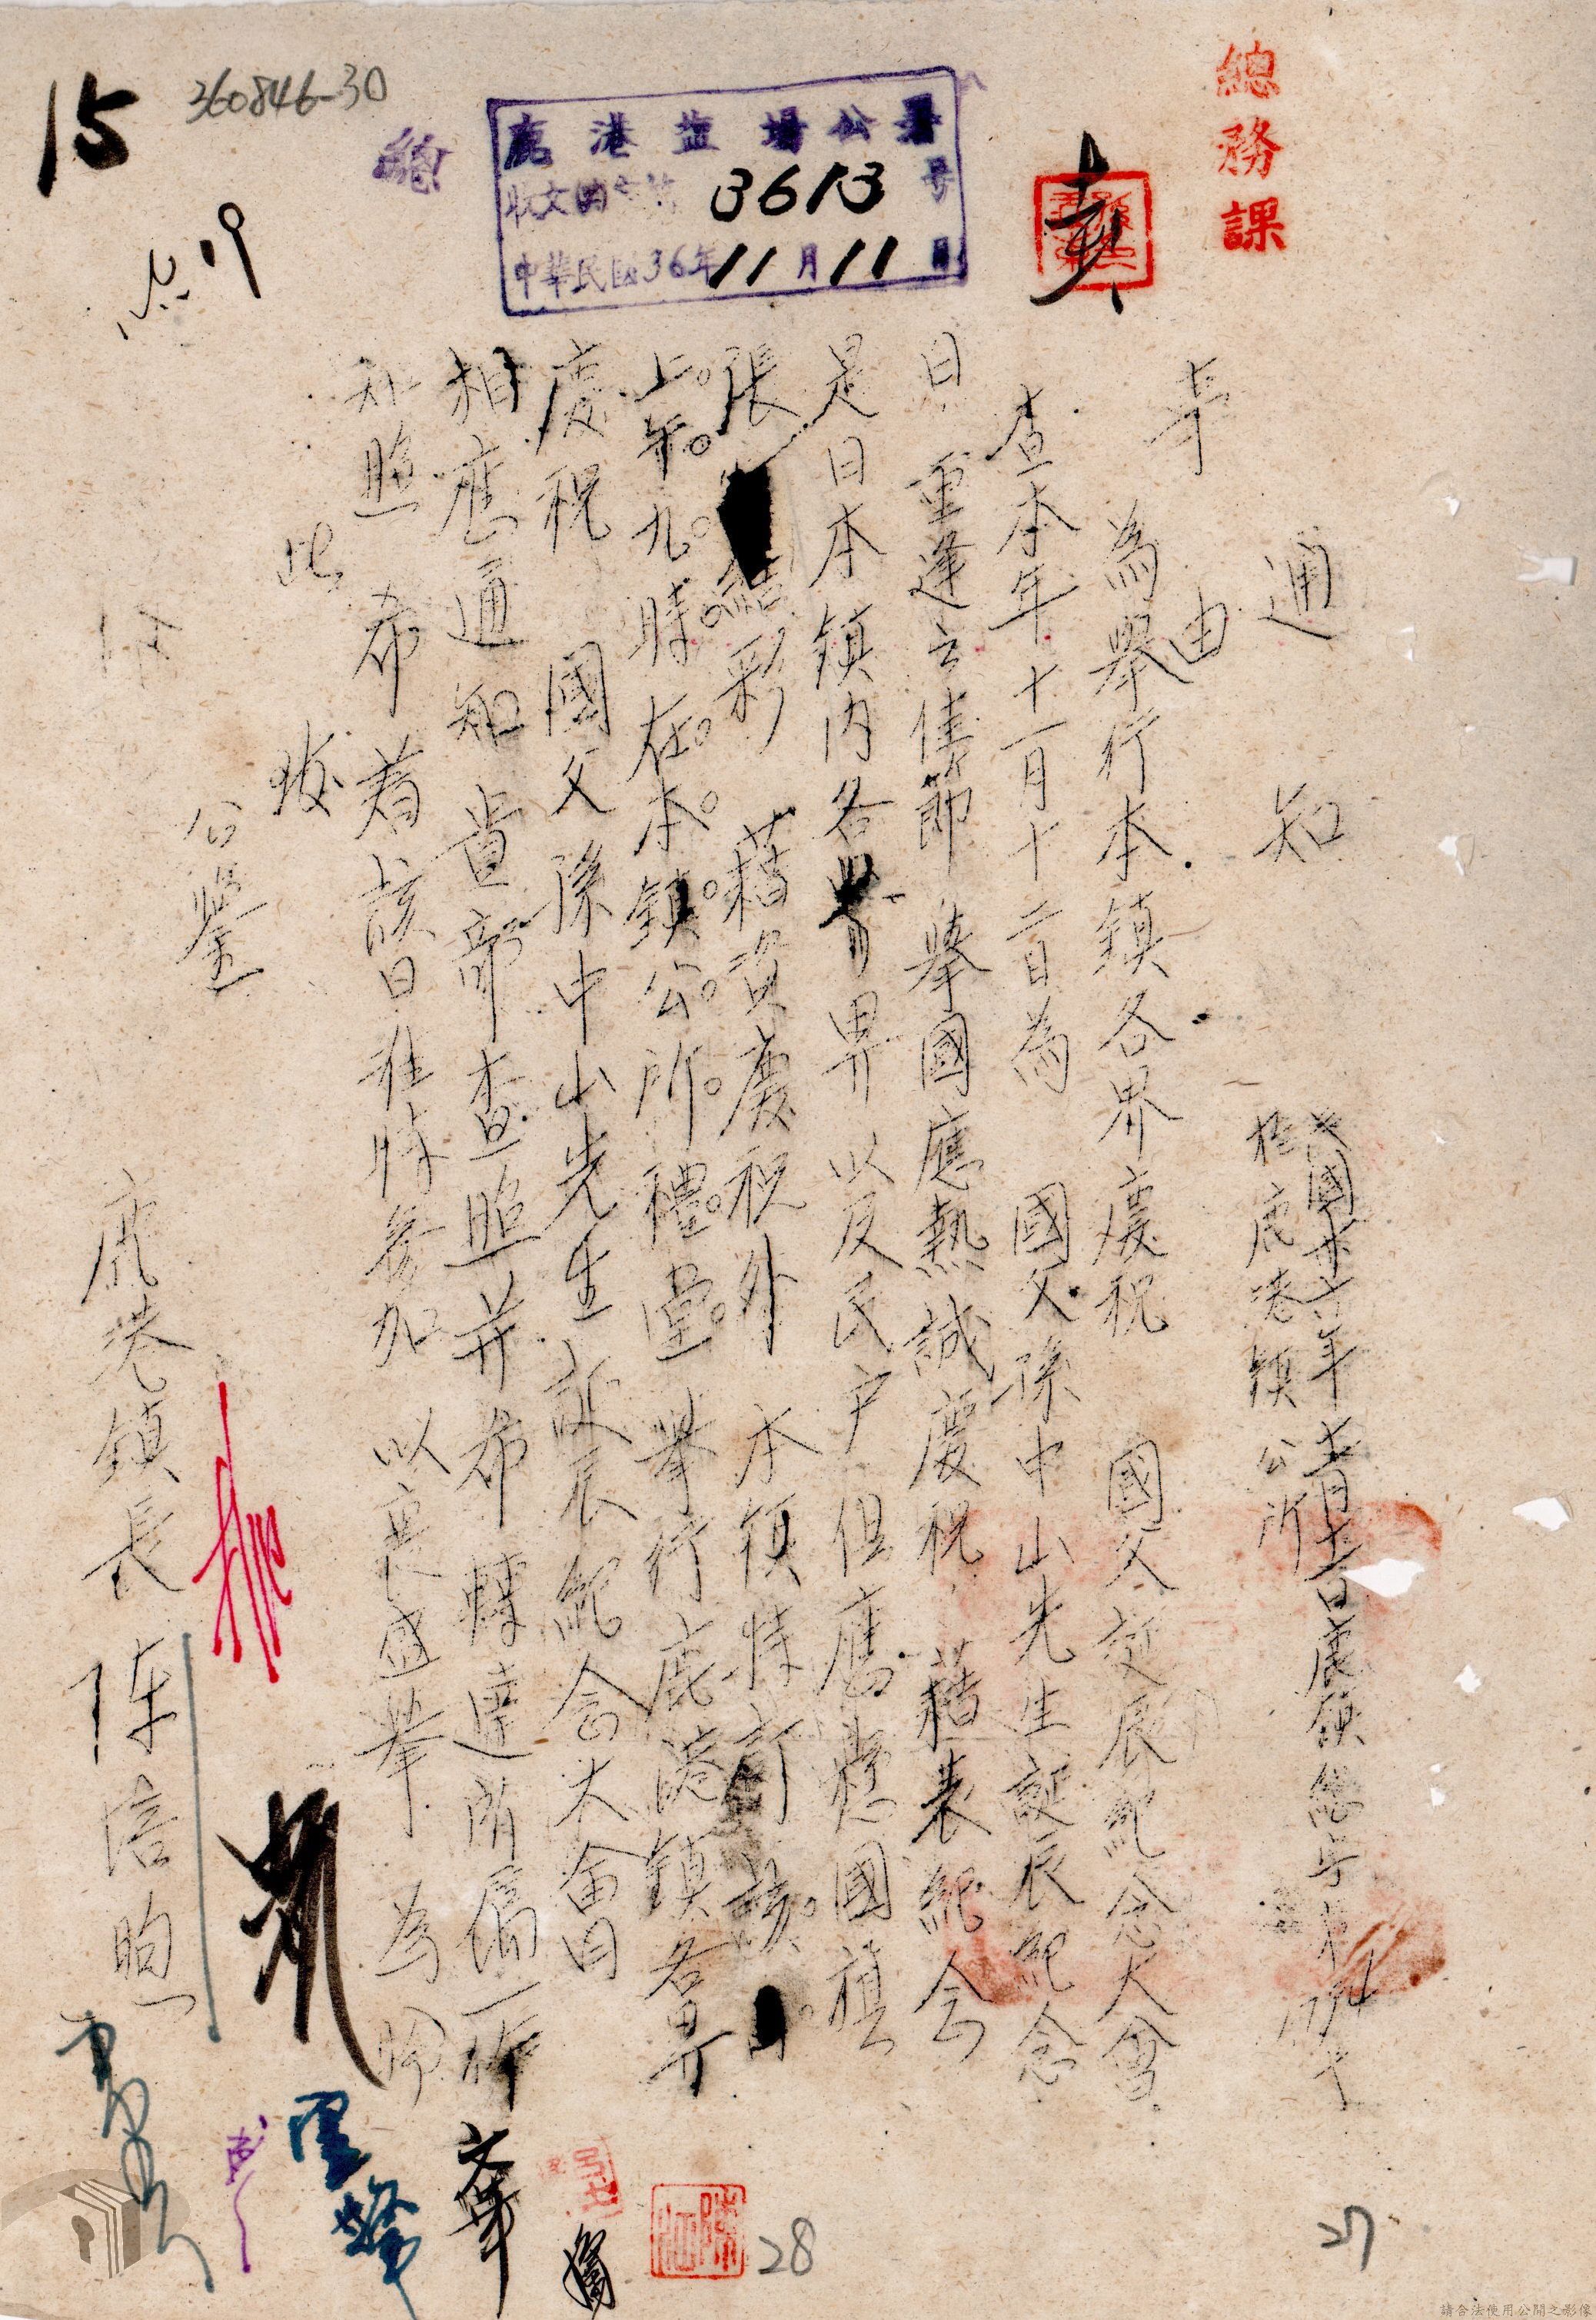 總務課
鹿港鹽場公署
收文 3613 号
中華民國36年11月11日
總
15
360846-30
通知
民國卅六年十一月十一日鹿鎮總字第 號
於鹿港鎮公所
事由
為舉行本鎮各界慶祝 國父誕辰紀念大會
查本年十一月十二日為 國父孫中山先生誕辰紀念
日 重逢之佳節 舉國應熱誠慶祝 藉表紀念
是日本鎮內各 界 以及民户但應懸國旗
張 結彩 藉資慶祝外 本鎮特訂該 日
上午九時在本鎮公所禮堂 舉行鹿港鎮各界
慶祝 國父孫中山先生誕辰紀念大會 因
相應通知 貴部查照并希轉達所屬一体
知照 希着該日准時參加 以襄盛舉 為盼
此致
公鑒
鹿港鎮長 陈培煦
文華
28
27
請合法使用公開之影像